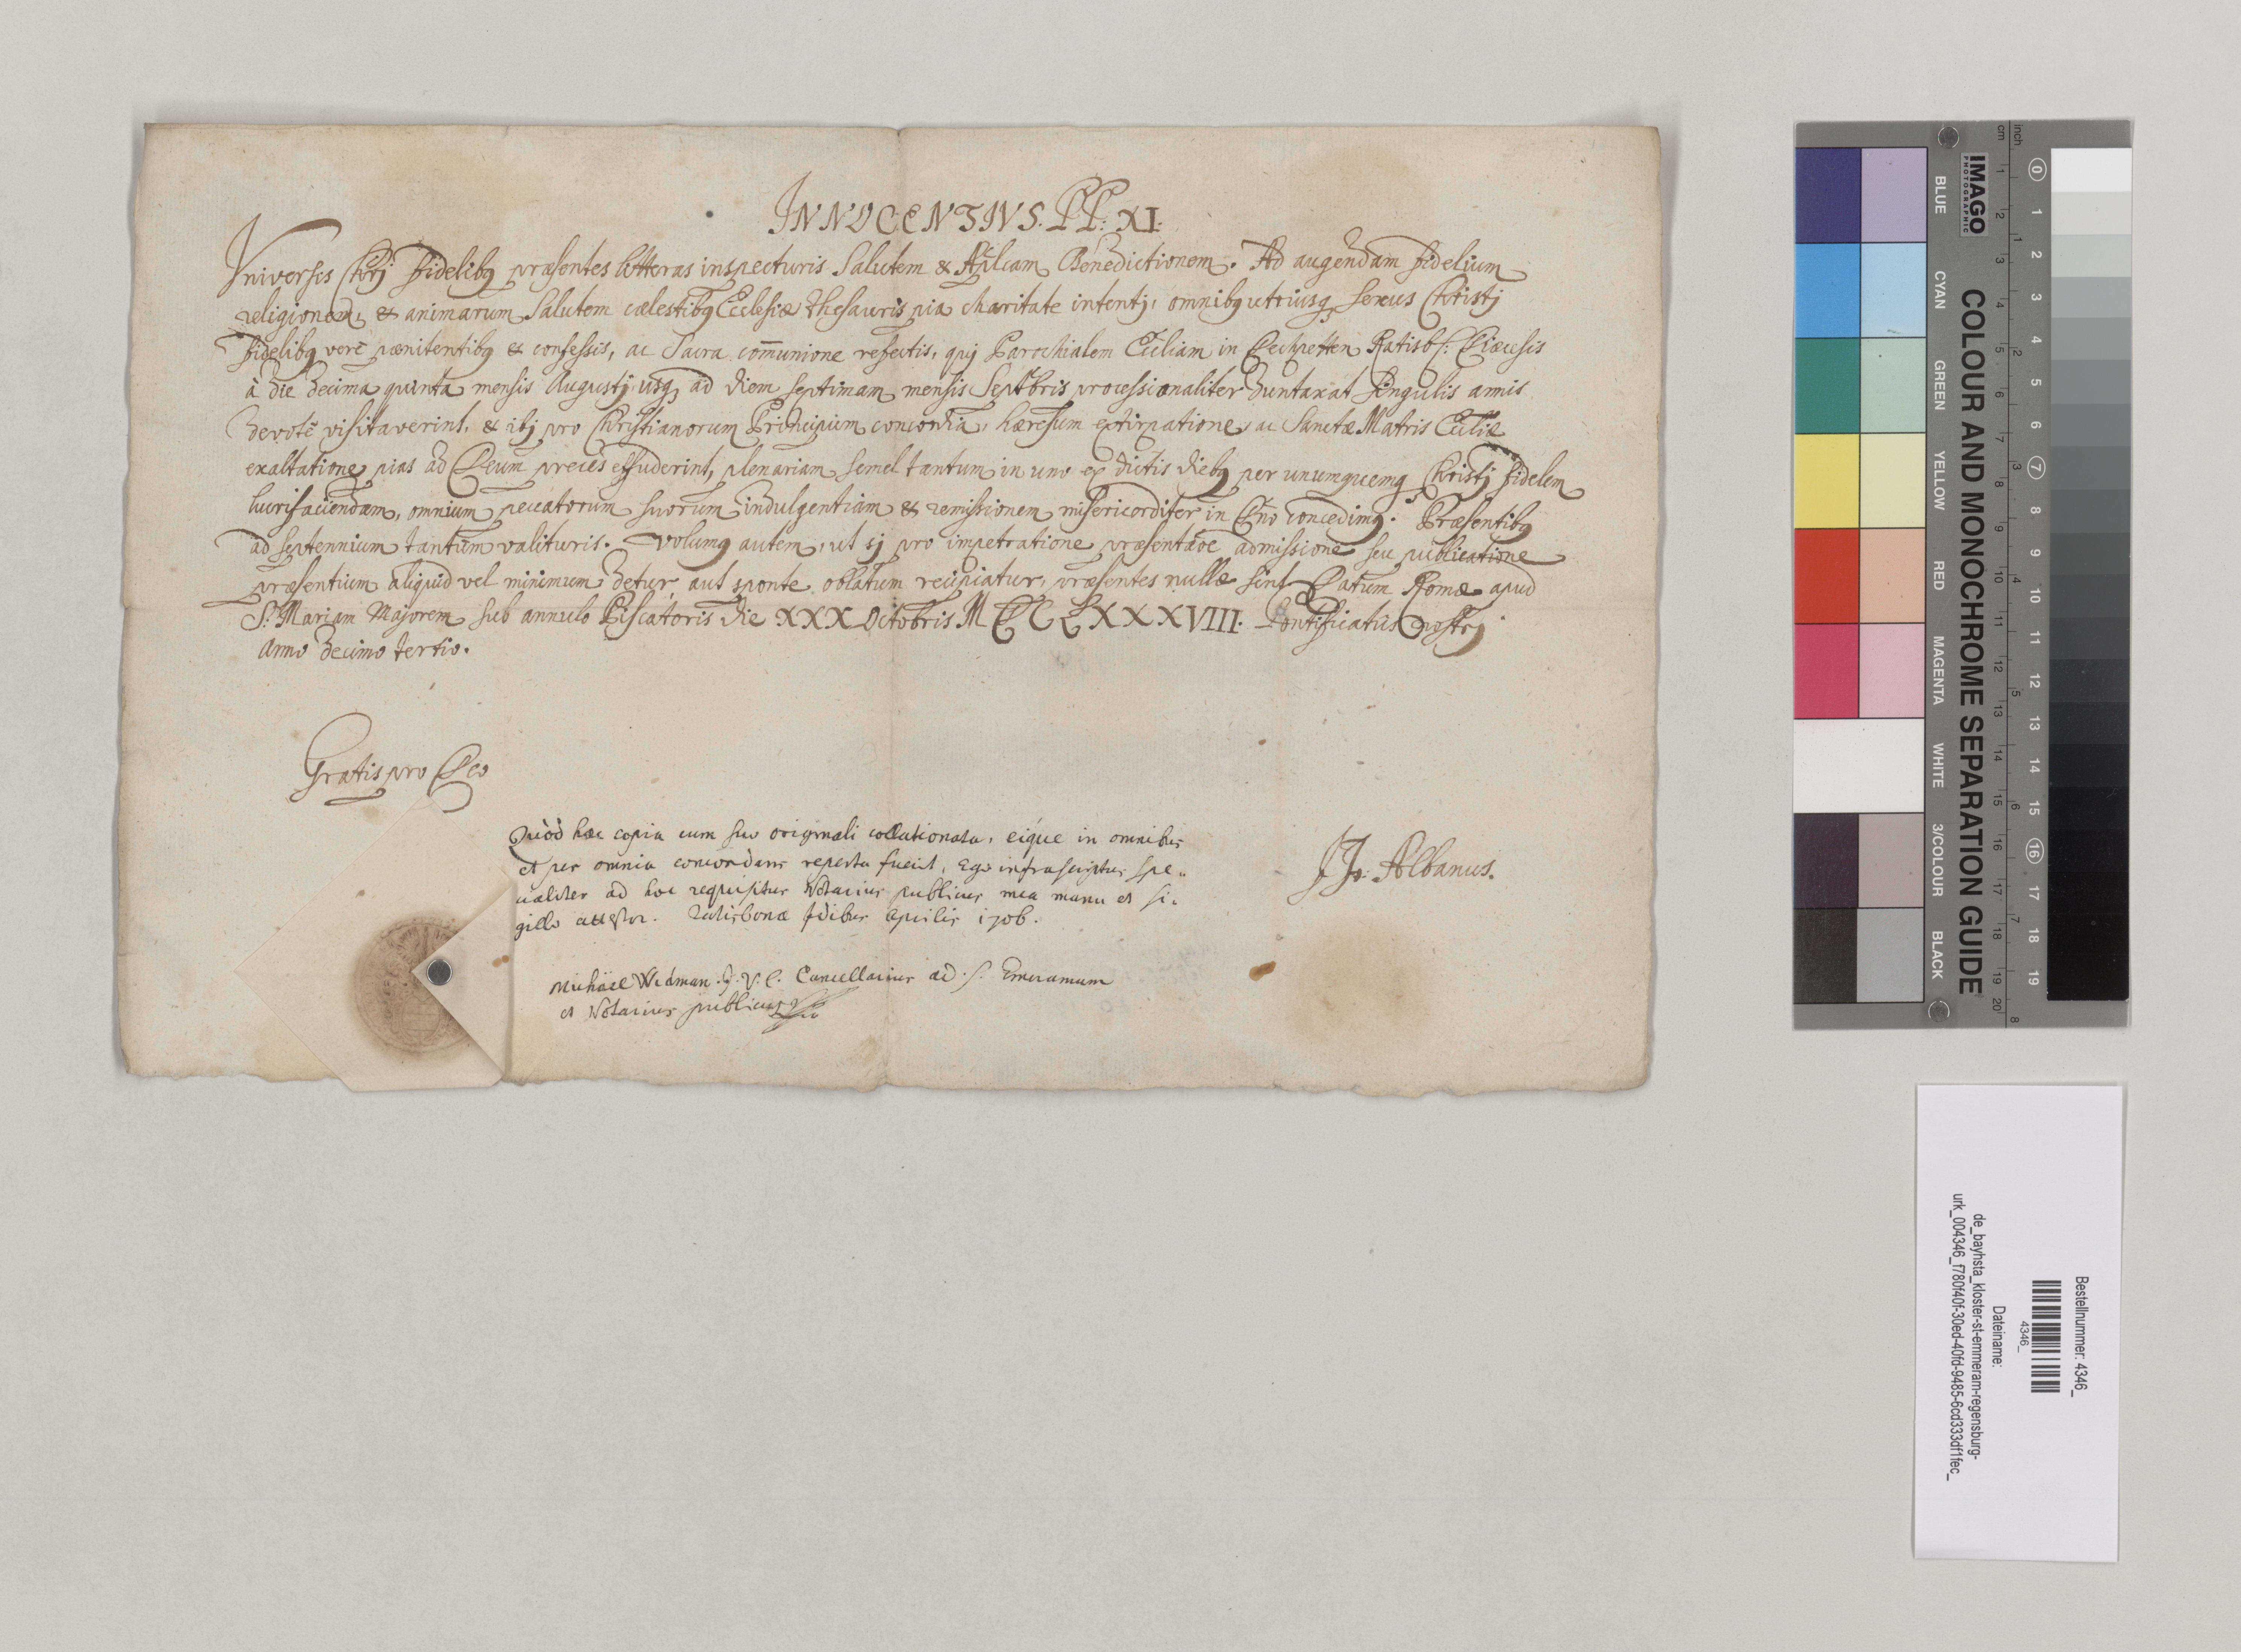 INNOCENTIUS. PP: XI:
Universis Chri fidelibq præsentes litteras inspecturis Salutem & Aplicam Benedictionem. Ad augendam fidelium
religionem, & animarum Salutem cælestibq Ecclesiæ thesauris pia charitate intentj, omnibq utriusq sexus Christj
fidelibq verè pœnitentibq & confessis, ac Sacra com̄unione refectis, quj Parochialem Ecćliam in Dechpetten Ratisb: Diœcesis
à die decima quinta mensis Augustj usq ad diem septimam mensis Septbris processionaliter duntaxat singulis annis
devotè visitaverint, & ibj pro Christianorum Principium concordia, hæresum extirpatione, ac Sanctæ Matris Ecćliæ
exaltatione pias ad Deum preces effuderint, plenariam semel tantum in uno ex dictis diebq per unumquemq Christj fidelem
lucrifaciendam, omnium peccatorum suorum indulgentiam & remissionem misericorditer in Dno concedimq. Præsentibq
ad septennium tantùm valituris. Volumq autem, ut sj pro impetratione præsentaõe admissione seu publicatione
præsentium aliquid vel minimum detur, aut sponte oblatum recipiatur, præsentes nullæ sint. Datum Romæ apud
S. Mariam Majorem sub annulo Piscatoris die XXX Octobris M DC LXXXVIII. Pontificatûs nostrj
Anno decimo tertio.
Gratis pro Deo
Quòd hæc copia cum suo originali collationata, eique in omnibus
et per omnia concordans reperta fuerit, Ego infrascriptus spe-
cialiter ad hoc requisitus Notarius publicus mea manu et si-
gillo attestor. Ratisbonæ Idibus Aprilis 1706.
J. Jo: Albanus.
Michäel Widman. J. V. C. Cancellarius ad S. Emeramum
et Notarius publicus
IMAGO
PHOTOGRAPHIC
COLOUR AND MONOCHROME SEPARATION GUIDE
cm 1 2 3 4 5 6 7 8 9 10 11 12 13 14 15 16 17 18 19 20
inch 1 2 3 4 5 6 7 8
0 1 2 3 4 5 6 7 8 9 10 11 12 13 14 15 16 17 18 19
BLUE
CYAN
GREEN
YELLOW
RED
MAGENTA
WHITE
3/COLOUR
BLACK
Bestellnummer: 4346_
4346_
Dateiname:
de_bayhsta_kloster-st-emmeram-regensburg-
urk_004346_f780f40f-30ed-40fd-9485-6cd333df1fec_